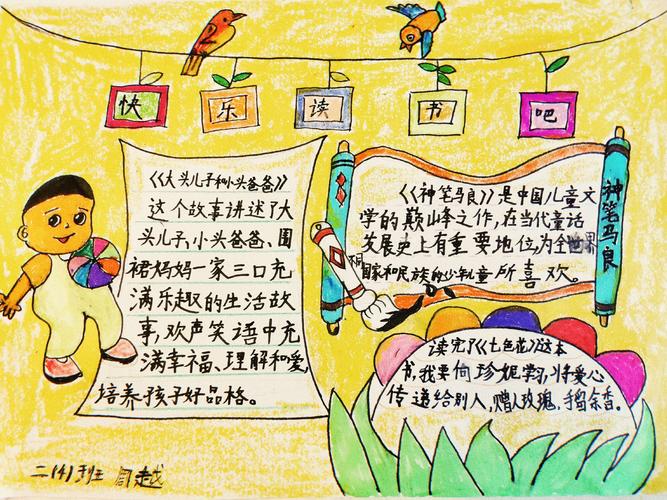 快乐读书吧
《大头儿子和小头爸爸》
这个故事讲述了大
头儿子,小头爸爸、围
裙妈妈一家三口充
满乐趣的生活故
事,欢声笑语中充
满幸福、理解和爱,
培养孩子好品格。
《神笔马良》是中国儿童文
学的巅峰之作,在当代童话
发展史上有重要地位,为全世界
不同国家和民族的少年儿童所喜欢。
神笔马良
读完了《七色花》这本
书,我要向珍妮学习,将爱心
传递给别人,赠人玫瑰,手留余香。
二(4)班 周越